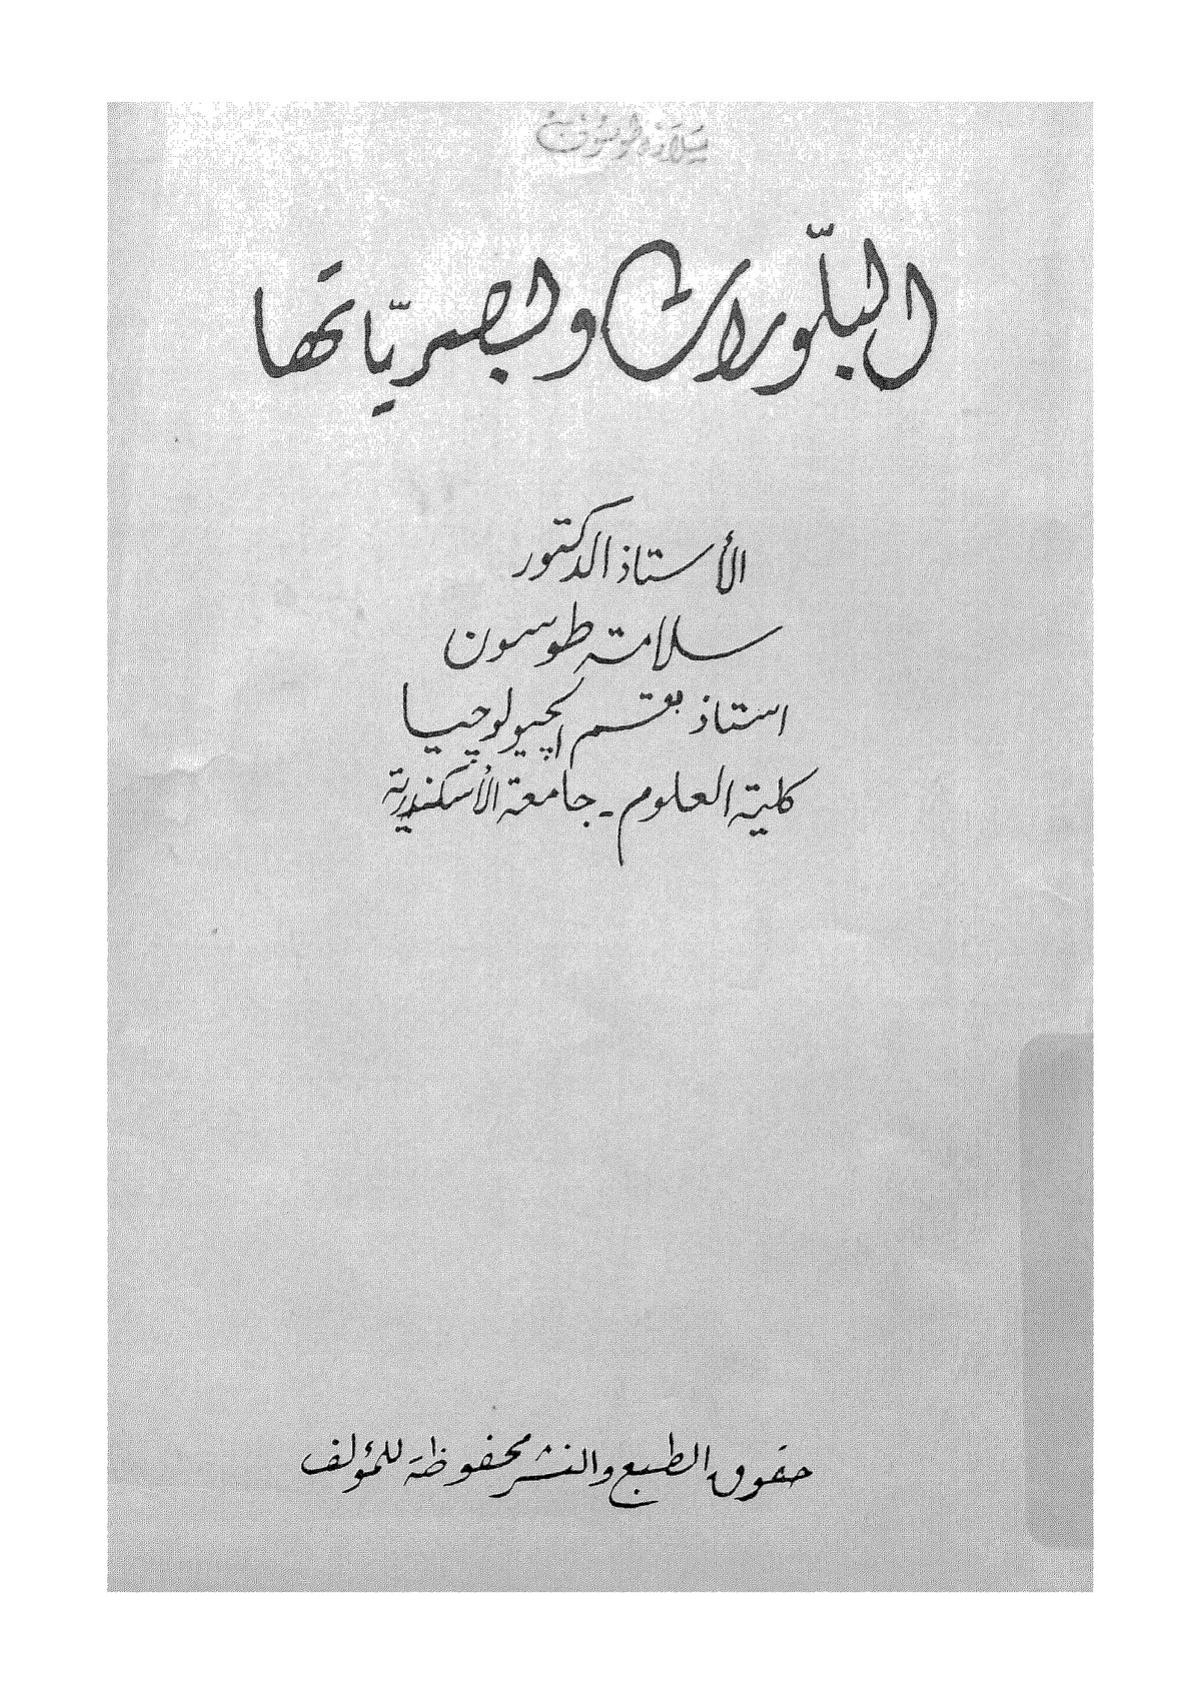 سلامة طوسون
البلّورات وبصريّاتها
الأستاذ الدكتور
سلامة طوسون
استاذ بقسم الچيولوچيا
كلية العلوم - جامعة الأسكندرية
حقوق الطبع والنشر محفوظة للمؤلف